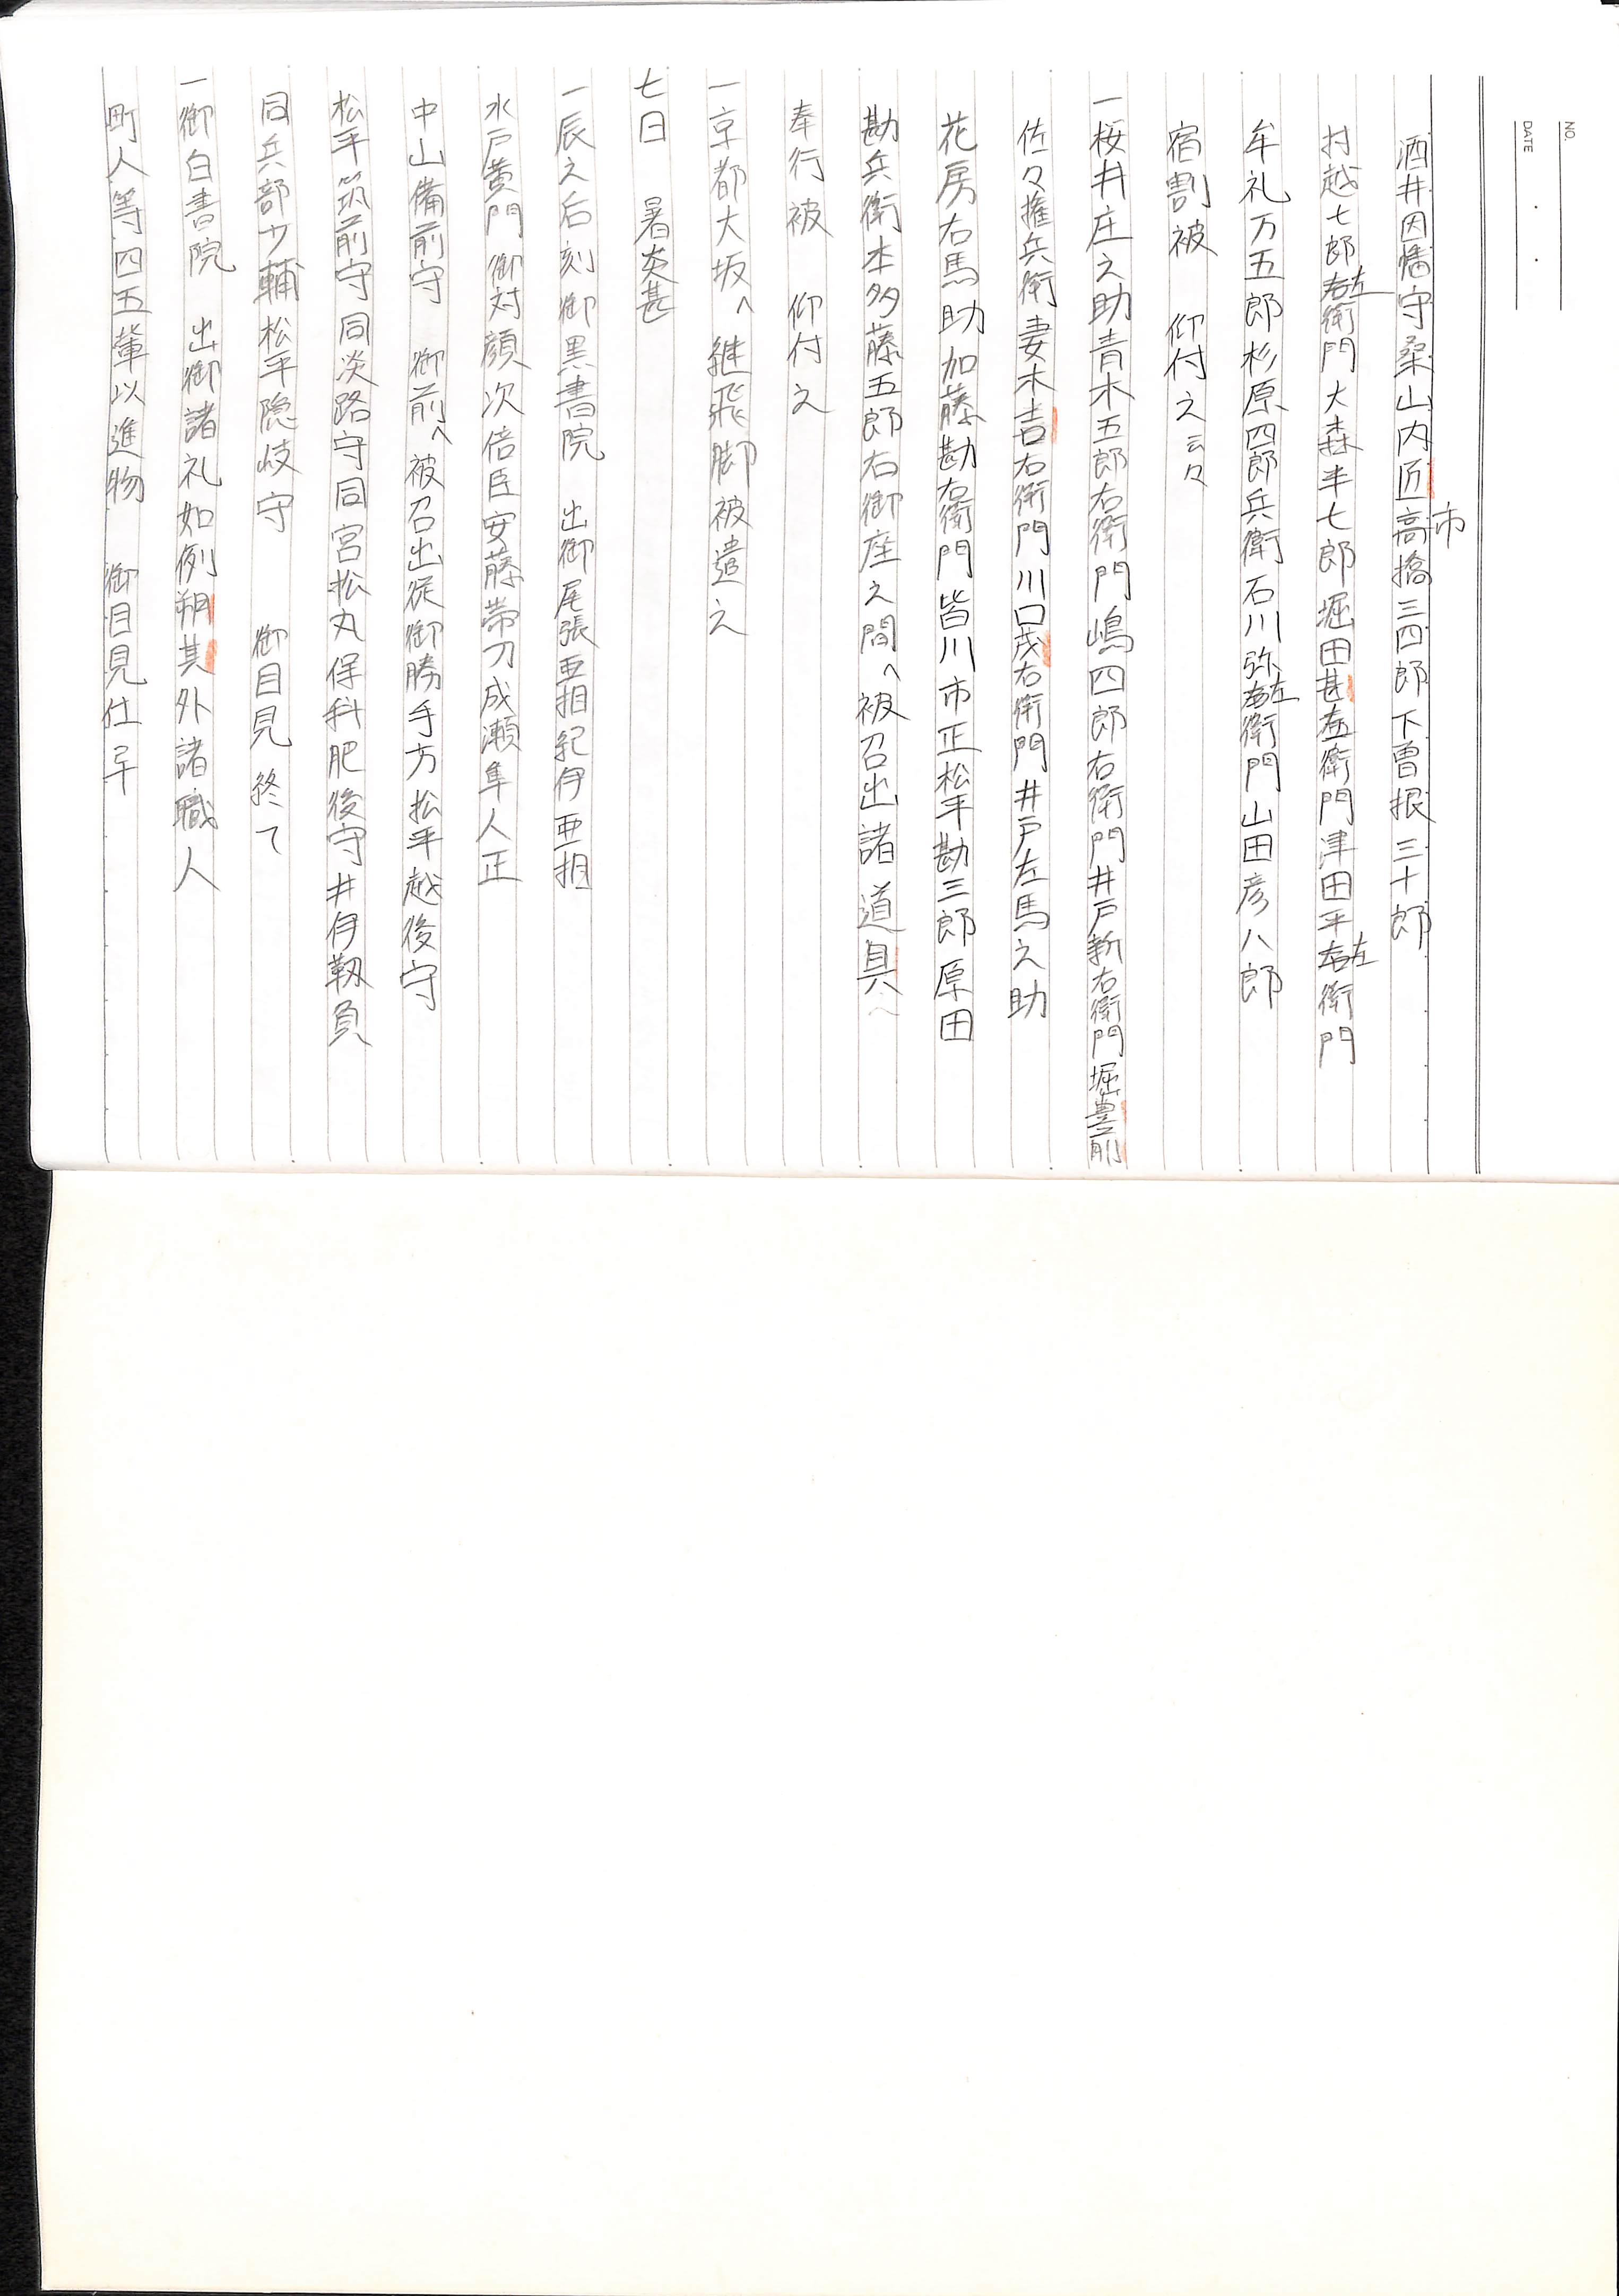 NO.
DATE
酒井因幡守桑山内匠高橋三四郎下曽根三十郎
市
村越七郎右衛門大森半七郎堀田甚左衛門津田平右衛門
左
左
牟礼万五郎杉原四郎兵衛石川弥右衛門山田彦八郎
左
宿割被　仰付之云々
一桜井庄之助青木五郎右衛門嶋四郎右衛門井戸新右衛門堀豊前
佐々権兵衛妻木吉右衛門川口茂右衛門井戸左馬之助
花房右馬助加藤勘右衛門皆川市正松平勘三郎原田
勘兵衛本多藤五郎右御座之間へ被召出諸道具
奉行被　仰付之
一京都大坂へ継飛脚被遣之
七日　暑炎甚
一辰之后刻御黒書院　出御尾張亜相紀伊亜相
水戸黄門　御対顔次倍臣安藤帯刀成瀬隼人正
中山備前守　御前へ被召出従御勝手方松平越後守
松平筑前守同淡路守同宮松丸保科肥後守井伊靱負
同兵部少輔松平隠岐守　　御目見終て
一御白書院　出御諸礼如例朔其外諸職人
町人等四五輩以進物　御目見仕